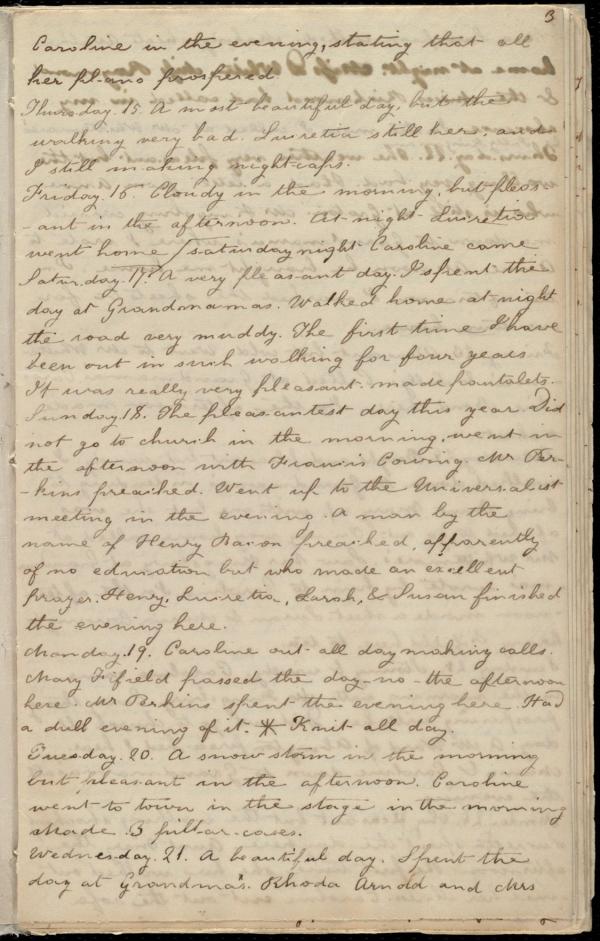 3
Caroline in the evening, stating that all
her plans prospered
Thursday. 15. A most beautiful day, but the
walking very bad. Lucretia still here, and
I still making night-caps.
Friday. 16. Cloudy in the morning, but pleas-
-ant in the afternoon. At night Lucretia
went home / saturday night Caroline came
Saturday. 17. A very pleasant day. I spent the
day at Grandmamas. Walked home at night
the road very muddy. The first time I have
been out in such walking for four years
It was really very pleasant. made pantalets.
Sunday. 18. The pleasantest day this year. Did
not go to church in the morning. went in
the afternoon with Francis Cowing. Mr Per-
-kins preached. Went up to the Universalist
meeting in the evening. A man by the
name of Henry Bacon preached, apparently
of no education but who made an excellent
prayer. Henry, Lucretia, Sarah, & Susan finished
the evening here.
Monday. 19. Caroline out all day making calls.
Mary Fifield passed the day - no - the afternoon
here. Mr Perkins spent the evening here. Had
a dull evening of it. * Knit all day.
Tuesday. 20. A snow storm in the morning
but pleasant in the afternoon. Caroline
went to town in the stage in the morning
Made 3 pillar-cases.
Wednesday. 21. A beautiful day. Spent the
day at Grandma's. Rhoda Arnold and Mrs